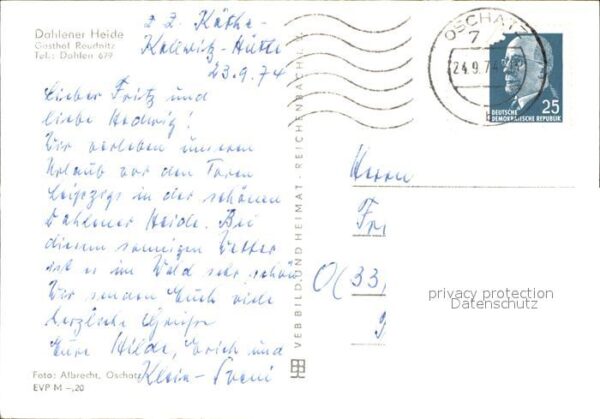 Dahlener Heide
Gasthof Reudnitz
Tel.: Dahlen 679
z Z. Käthe-
Kollwitz-Hütte
23.9.74
Lieber Fritz und
liebe Hedwig!
Wir verleben unseren
Urlaub vor den Toren
Leipzigs in der schönen
Dahlener Heide. Bei
diesem sonnigen Wetter
ist es im Wald sehr schön
Wir senden Euch viele
herzliche Grüße
Eure Hilde, Erich und
Klein-Sveni
Foto: Albrecht, Oschatz
EVP M -,20
VEB BILD UND HEIMAT · REICHENBACH I. V.
OSCHATZ
7
24.9.74
25
DEUTSCHE
DEMOKRATISCHE REPUBLIK
Herrn
Fri
O(33
privacy protection
Datenschutz